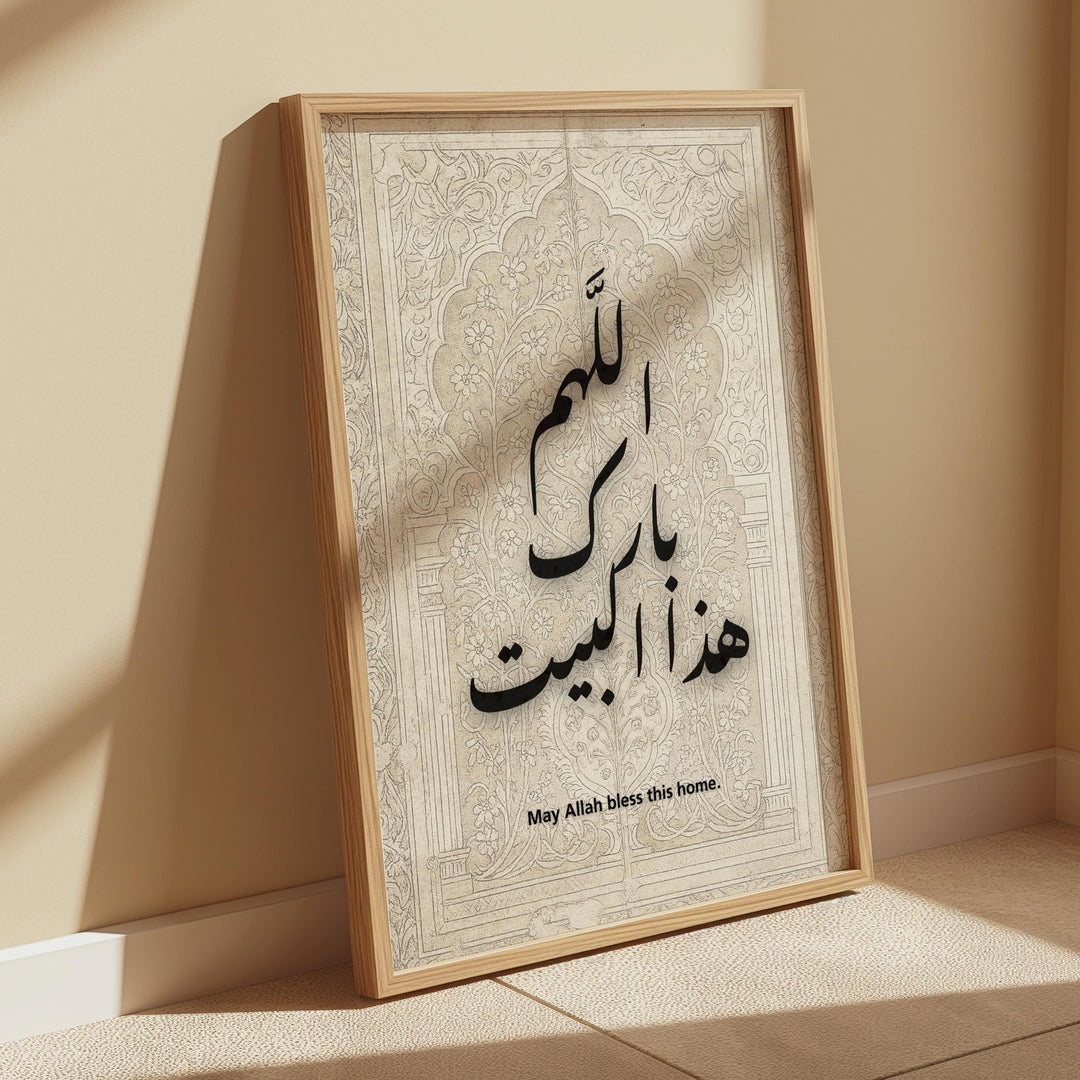 اللَّهم
بارك
هذا البيت
May Allah bless this home.